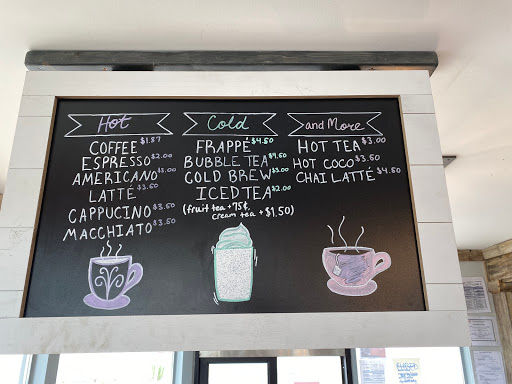 Hot
COFFEE $1.87
ESPRESSO $2.00
AMERICANO $3.00
LATTÉ $3.50
CAPPUCINO $3.50
MACCHIATO $3.50
Cold
FRAPPÉ $4.50
BUBBLE TEA $4.50
COLD BREW $3.00
ICED TEA $2.00
(fruit tea + 75¢,
cream tea + $1.50)
and More
HOT TEA $3.00
HOT COCO $3.50
CHAI LATTÉ $4.50